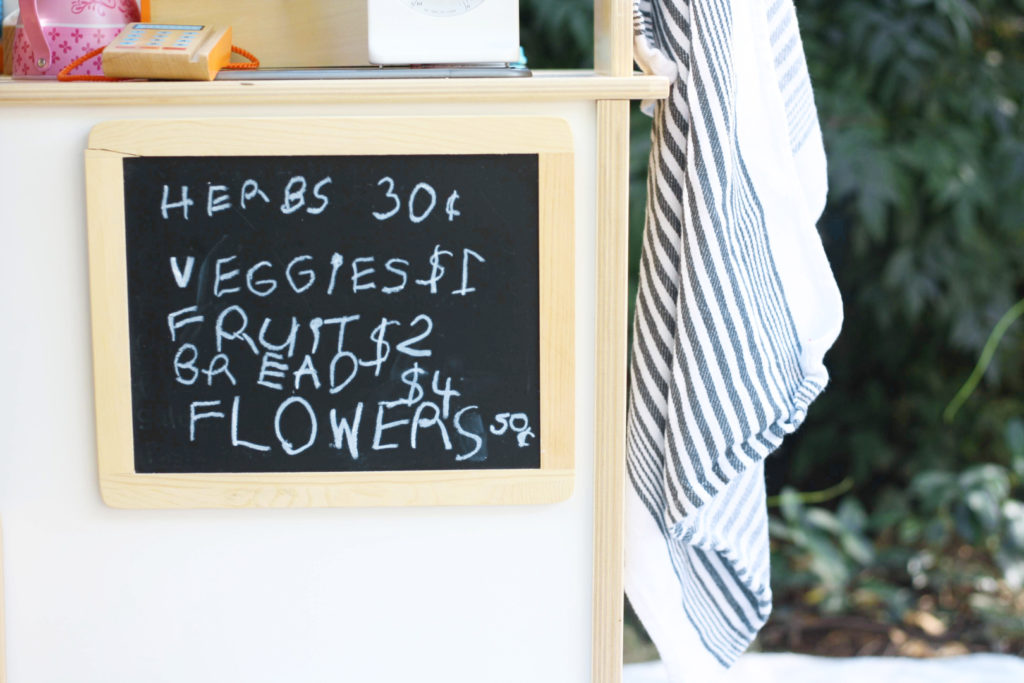 HERBS 30¢
VEGGIES $1
FRUIT $2
BREAD $4
FLOWERS 50¢